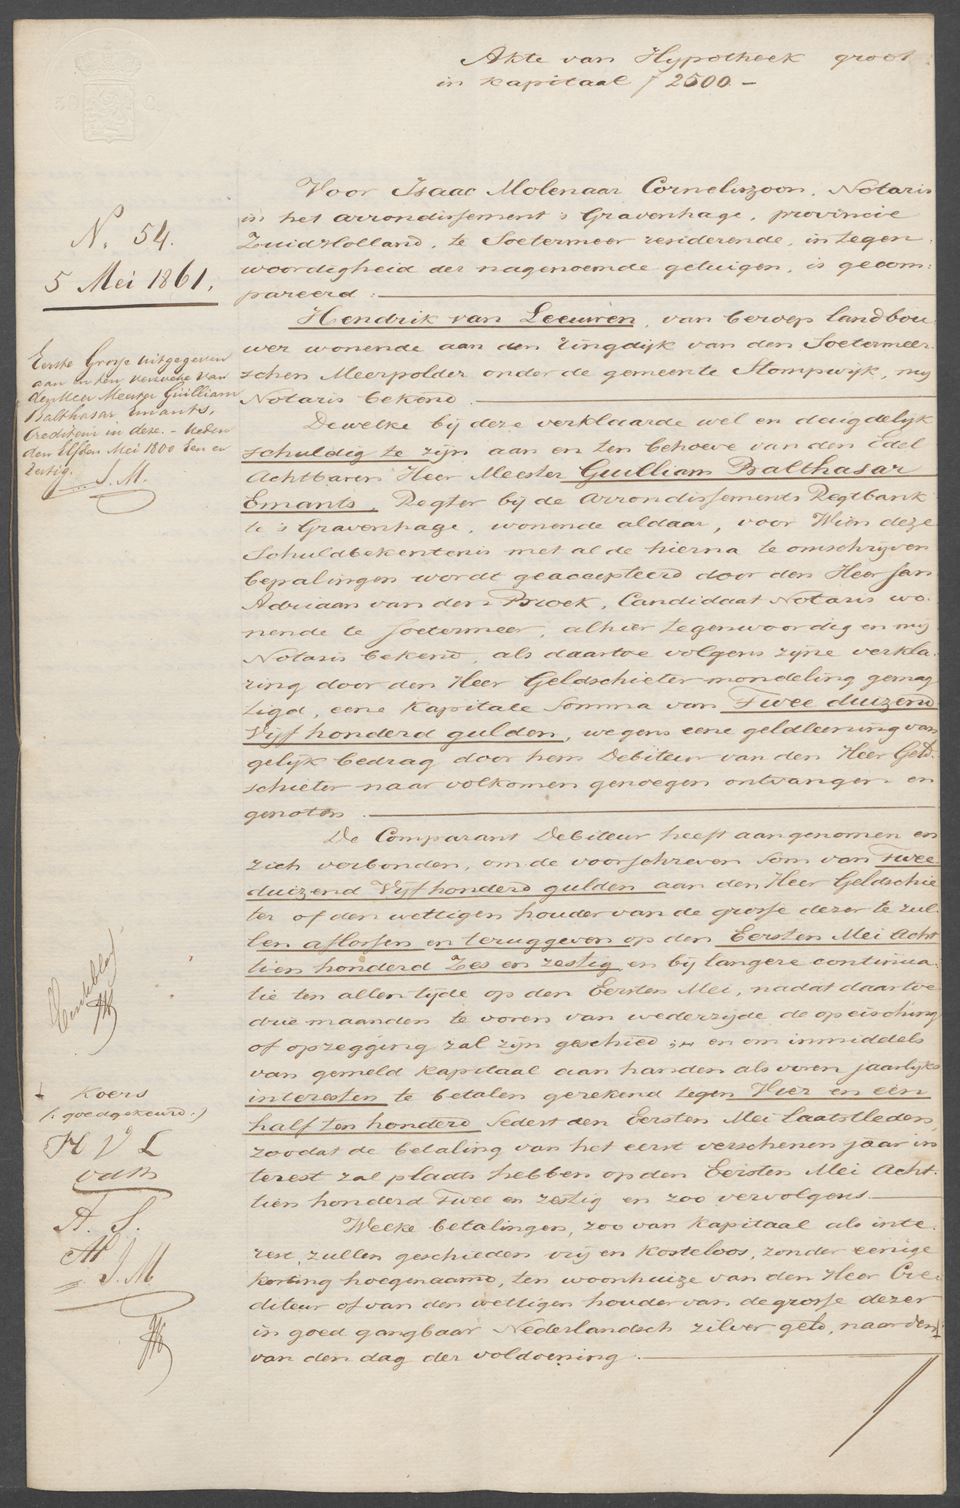 Akte van Hypotheek groot
in kapitaal ƒ 2500.-
N. 54.
5 Mei 1861.
Eerste Grosse uitgegeven
aan en ten verzoeke van
den Heer Meester Guilliam
Balthasar Emants,
Crediteur in deze. - Heden
den Elfden Mei 1800 Een en
Zestig.
J. M.
Voor Isaac Molenaar Corneliszoon, Notaris
in het arrondissement 's Gravenhage, provincie
Zuid Holland, te Soetermeer residerende, in tegen-
woordigheid der nagenoemde getuigen, is gecom-
pareerd:
Hendrik van Leeuwen, van beroep landbou-
wer wonende aan den ringdijk van den Soetermeer-
schen Meerpolder onder de gemeente Stompwijk, mij
Notaris bekend.
Dewelke bij deze verklaarde wel en deugdelijk
schuldig te zijn aan en ten behoeve van den Edel
Achtbaren Heer Meester Guilliam Balthasar
Emants, Regter bij de Arrondissements Regtbank
te 's Gravenhage, wonende aldaar, voor Wien deze
Schuldbekentenis met al de hierna te omschrijven
bepalingen wordt geaccepteerd door den Heer Jan
Adriaan van den Broek, Candidaat Notaris wo-
nende te Soetermeer, alhier tegenwoordig en mij
Notaris bekend, als daartoe volgens zijne verkla-
ring door den Heer Geldschieter mondeling gemag-
tigd, eene kapitale Somma van Twee duizend
Vijf honderd gulden, wegens eene geldleening van
gelijk bedrag door hem Debiteur van den Heer Geld-
schieter naar volkomen genoegen ontvangen en
genoten.
De Comparant Debiteur heeft aangenomen en
zich verbonden, om de voorschreven Som van Twee
duizend Vijf honderd gulden aan den Heer Geldschie-
ter of den wettigen houder van de grosse dezer te zul-
len aflossen en teruggeven op den Eersten Mei Acht-
tien honderd Zes en zestig, en bij langere continua-
tie ten allen tijde op den Eersten Mei, nadat daartoe
drie maanden te voren van wederzijde de opeisching
of opzegging zal zijn geschied; en om inmiddels
van gemeld kapitaal aan handen als voren jaarlijks
interesten te betalen gerekend tegen Vier en een
half ten honderd sedert den Eersten Mei laatstleden,
zoodat de betaling van het eerst verschenen jaar in-
terest zal plaats hebben op den Eersten Mei Acht-
tien honderd Twee en zestig en zoo vervolgens
Welke betalingen, zoo van kapitaal als inte-
rest, zullen geschieden vrij en kosteloos, zonder eenige
korting hoegenaamd, ten woonhuize van den Heer Cre-
diteur of van den wettigen houder van de grosse dezer
in goed gangbaar Nederlandsch zilver geld, naar den
van den dag der voldoening.
Koers
(: goedgekeurd :)
H V L
vdB
A. S.
J. M